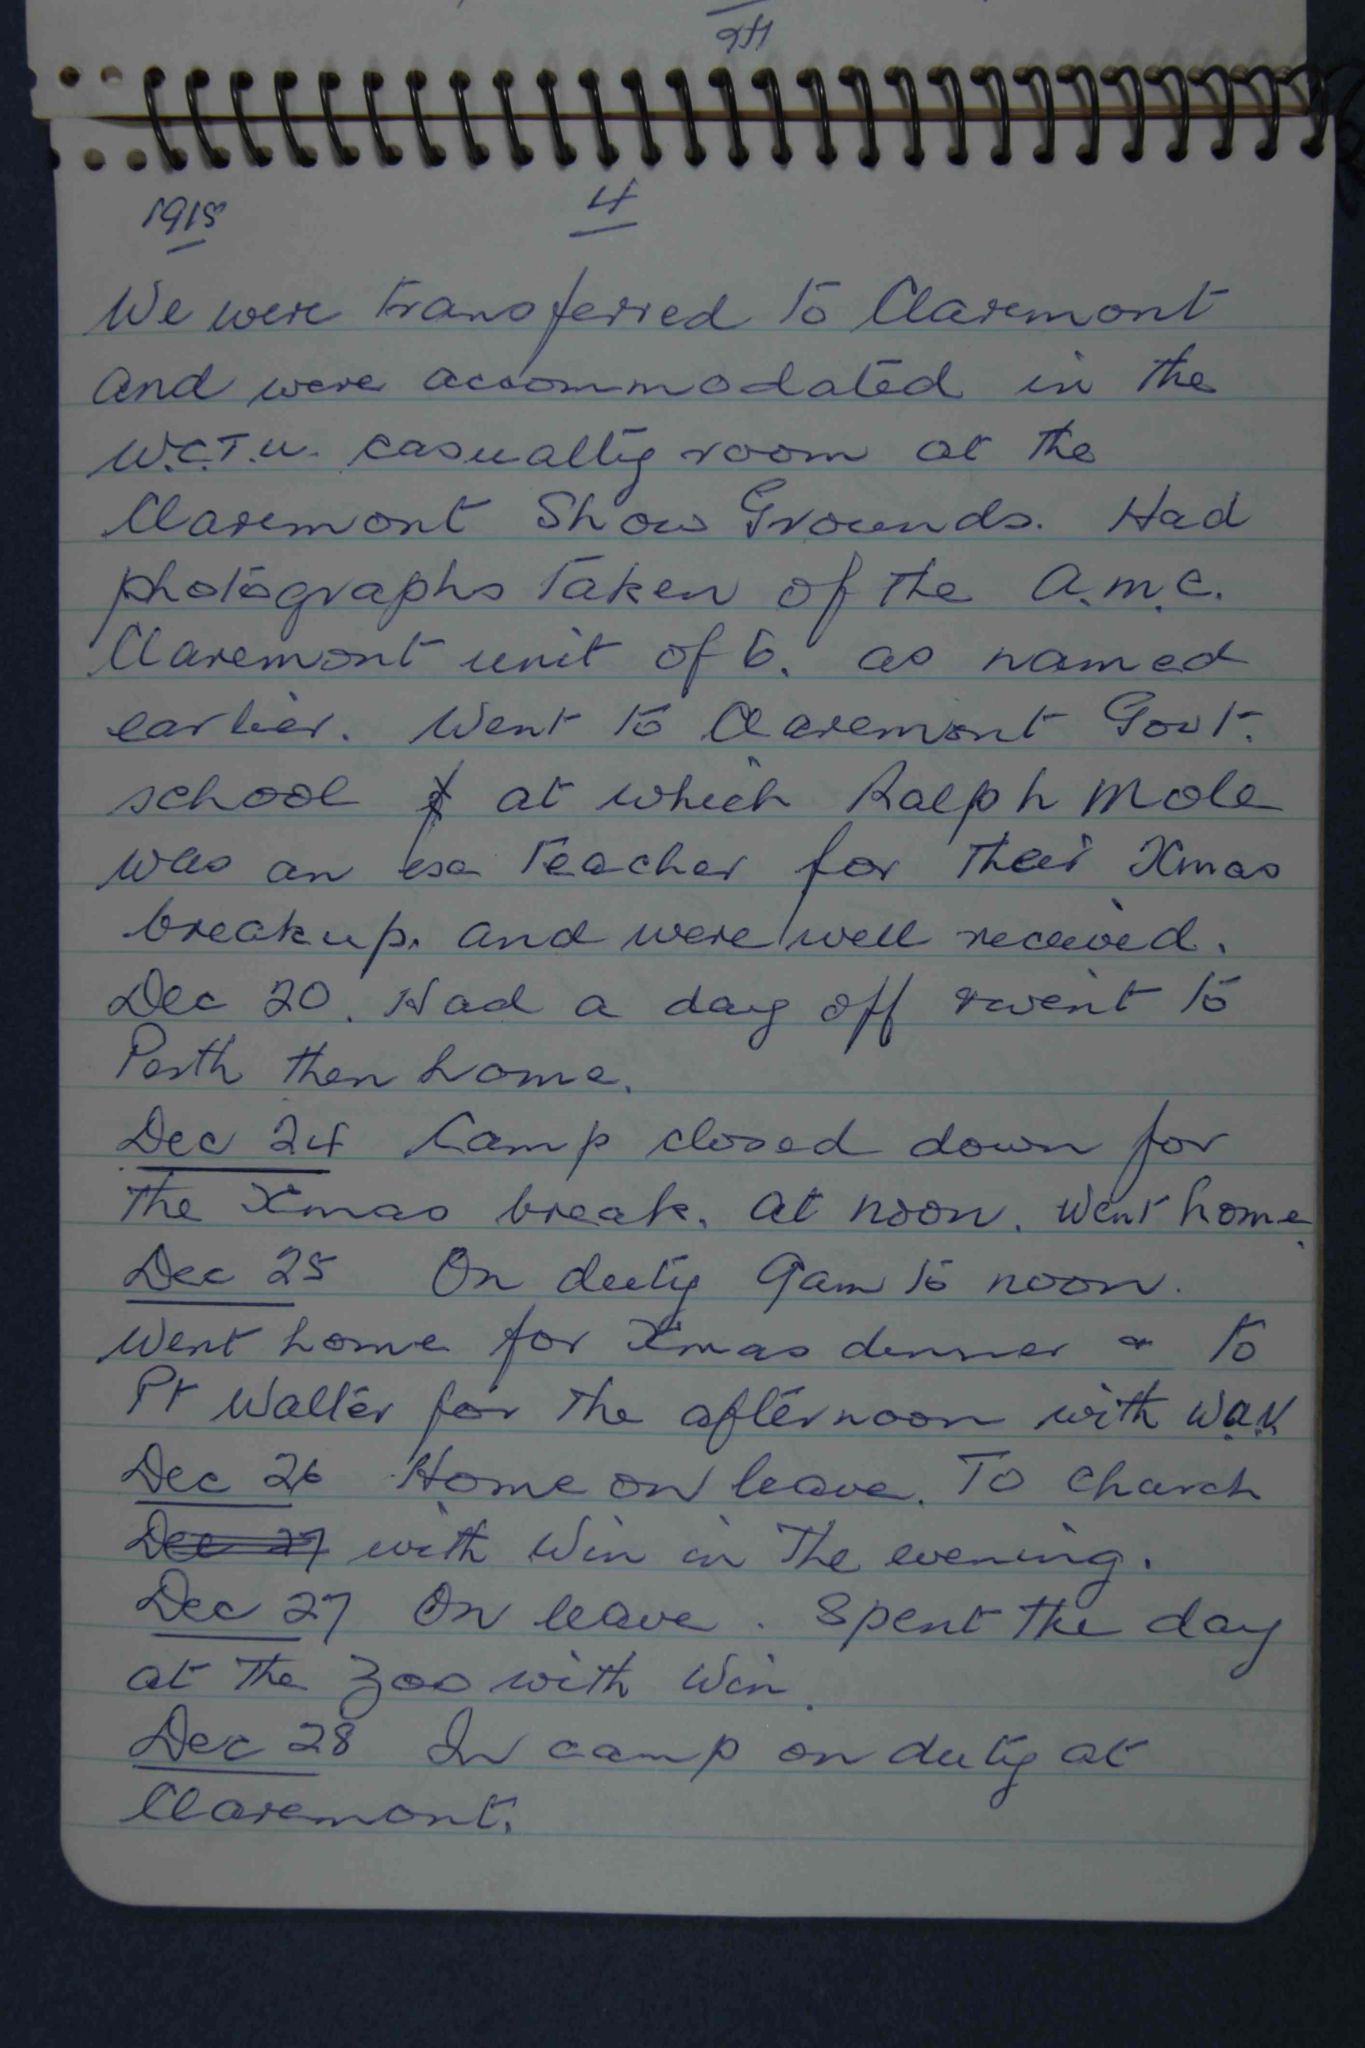 1915 4
We were transferred to Claremont
and were accommodated in the
W.C.T.U. casualty room at the
Claremont Show Grounds. Had
photographs taken of the A.M.C.
Claremont unit of 6. as named
earlier. Went to Claremont Govt.
school at which Ralph Mole
was an teacher for their Xmas
breakup. and were well received.
Dec 20. Had a day off & went to
Perth then home.
Dec 24 Camp closed down for
the Xmas break. at noon. Went home
Dec 25 On duty 9am to noon.
Went home for Xmas dinner & to
Pt Walter for the afternoon with W.A.V.
Dec 26 Home on leave. To Church
Dec 27 with Win in the evening.
Dec 27 On leave. Spent the day
at the Zoo with Win.
Dec 28 In camp on duty at
Claremont.